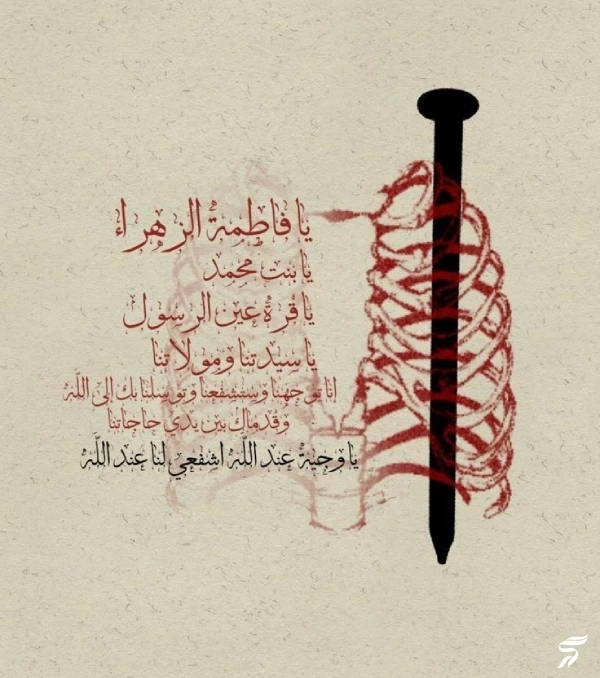 يا فاطمة الزهراء
يا بنت محمد
يا قرة عين الرسول
يا سيدتنا ومولاتنا
انا توجهنا وستشفعنا وتوسلنا بك الى الله
وقدماك بين يدي حاجاتنا
يا وجيهة عند الله اشفعي لنا عند الله